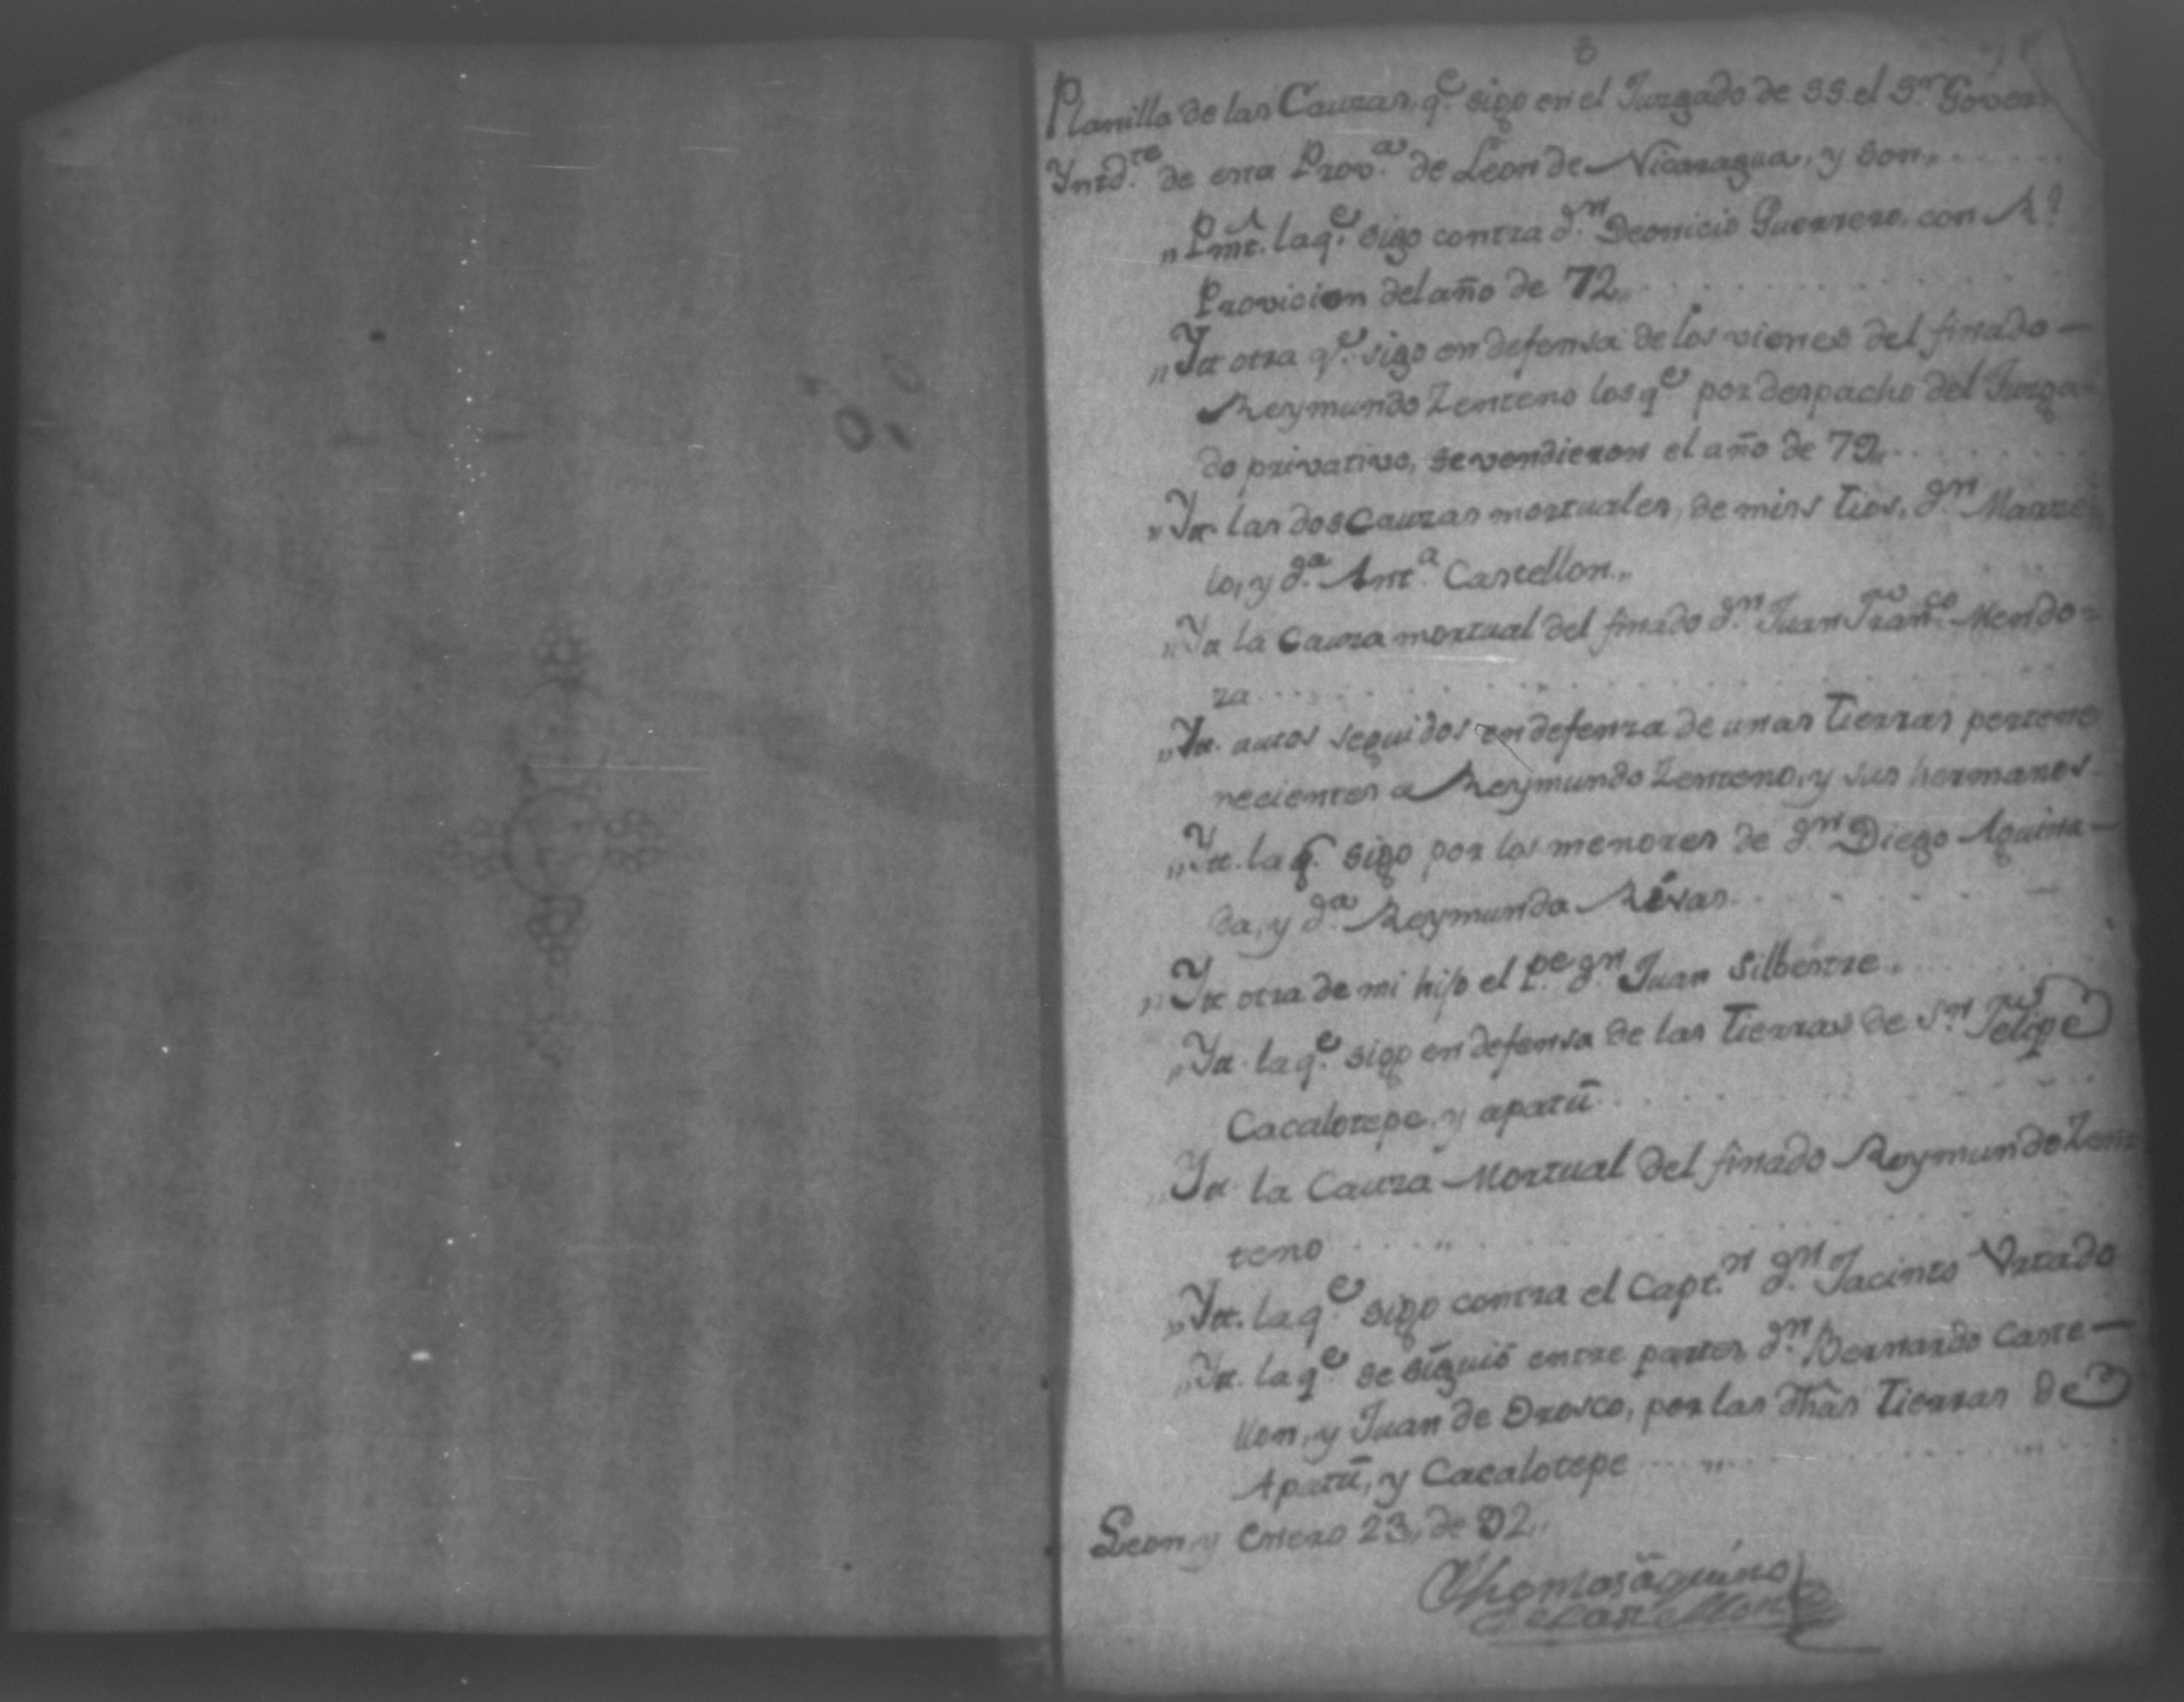 Planilla de las Cauzas, q.e sigo en el Juzgado de SS. el S.or Gover.
Yntd.te de esta Prov.a de Leon de Nicaragua, y son,,
,, Pmt. la q.e sigo contra d.n Deonicio Guerrero, con R.l
Provicion del año de 72,,
,, Yt otra q.e sigo en defensa de los vienes del finado
Reymundo Zenteno los q.e por despacho del Juzga
do privativo, se vendieron el año de 79,,
,, Yt las dos Cauzas mortuales, de mis tios, d.n Marze
lo, y d.a Ant.a Castellon,,
,, Yt la Cauza mortual del finado d.n Juan Fran.co Mendo=
za
,, Yt. autos seguidos en defenza de unas tierras pertene
necientes a Reymundo Zenteno, y sus hermanos
,, Yt. la q. sigo por los menores de d.n Diego Aguina
da, y d.a Reymunda Rivas
,, Yt otra de mi hijo el P.e d.n Juan Silbestre
,, Yt. la q.e sigo en defensa de las tierras de S.n Felipe
Cacalotepe, y apatū
,, Yt la Cauza Mortual del finado Reymundo Zen=
teno
,, Yt. la q.e sigo contra el Capt.n d.n Jacinto Vrtado
,, Yt. la q.e se siguió entre partes d.n Bernardo Caste
llon, y Juan de Orosco, por las dhās tierras de
Apatū, y Cacalotepe
Leon, y Enero 23, de 92,,
Thomas aquino
de Castellon